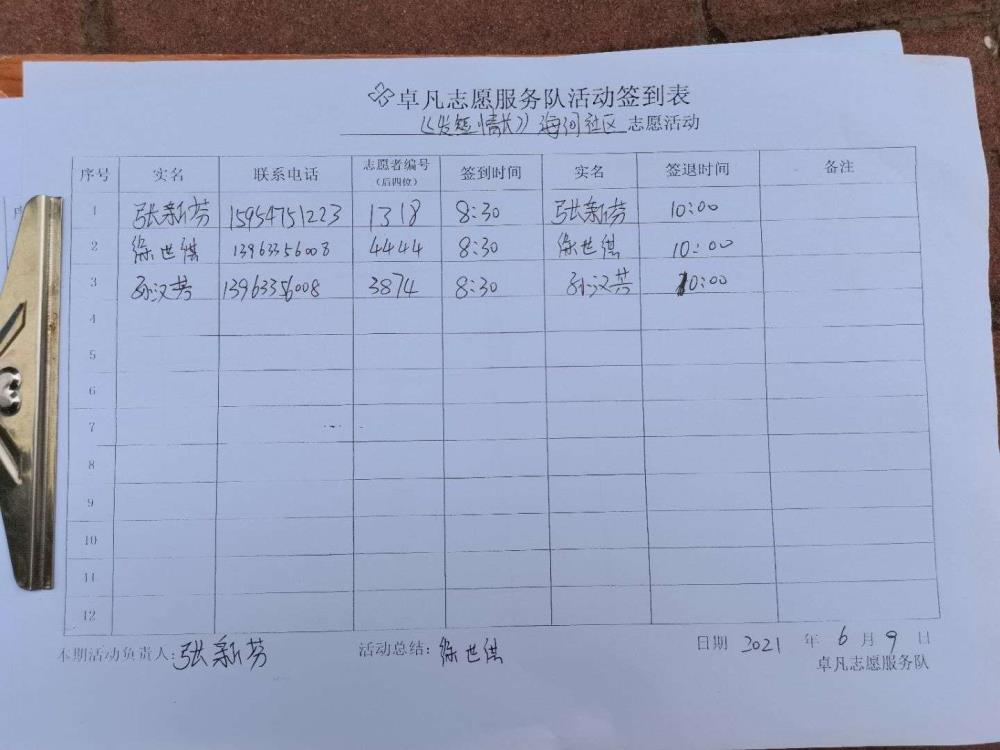 卓凡志愿服务队活动签到表
《发短情长》海河社区 志愿活动
序号 实名 联系电话 志愿者编号(后四位) 签到时间 实名 签退时间 备注
1 张新芬 15954751223 1318 8:30 张新芬 10:00
2 徐世供 13963356008 4444 8:30 徐世供 10:00
3 孙汉芳 13963356008 3874 8:30 孙汉芳 10:00
4
5
6
7
8
9
10
11
12
本期活动负责人:张新芬 活动总结:徐世供 日期 2021 年 6 月 9 日
卓凡志愿服务队